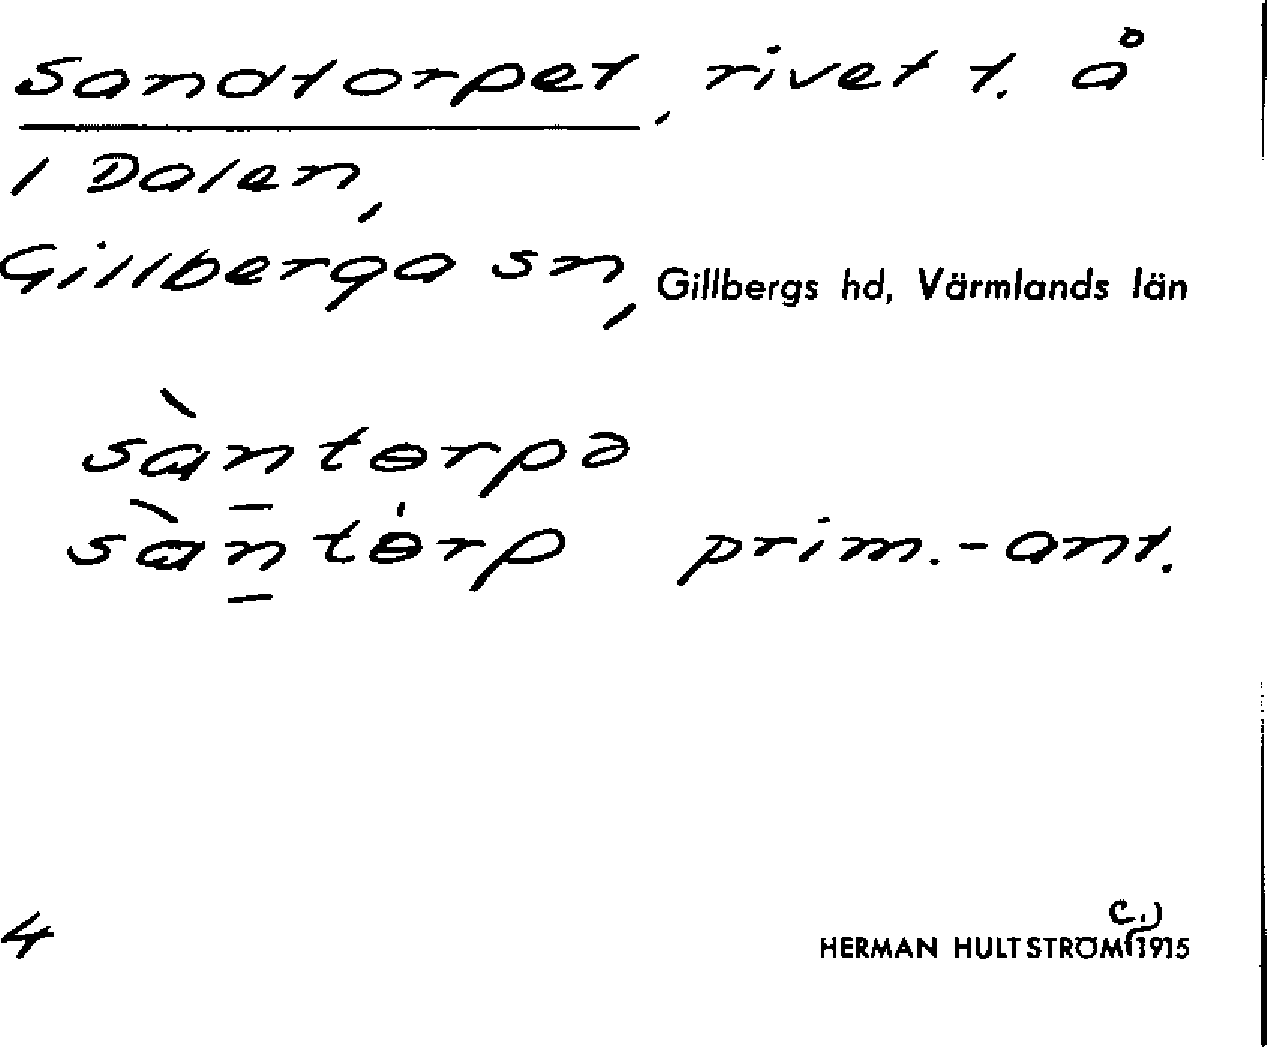 Sandtorpet, rivet t. å
1 Dalen,
Gillberga sn, Gillbergs hd, Värmlands län
sàntɵrpə
sàn̠tɵ̇rp prim.-ant.
4
HERMAN HULTSTRÖM (c.) 1915